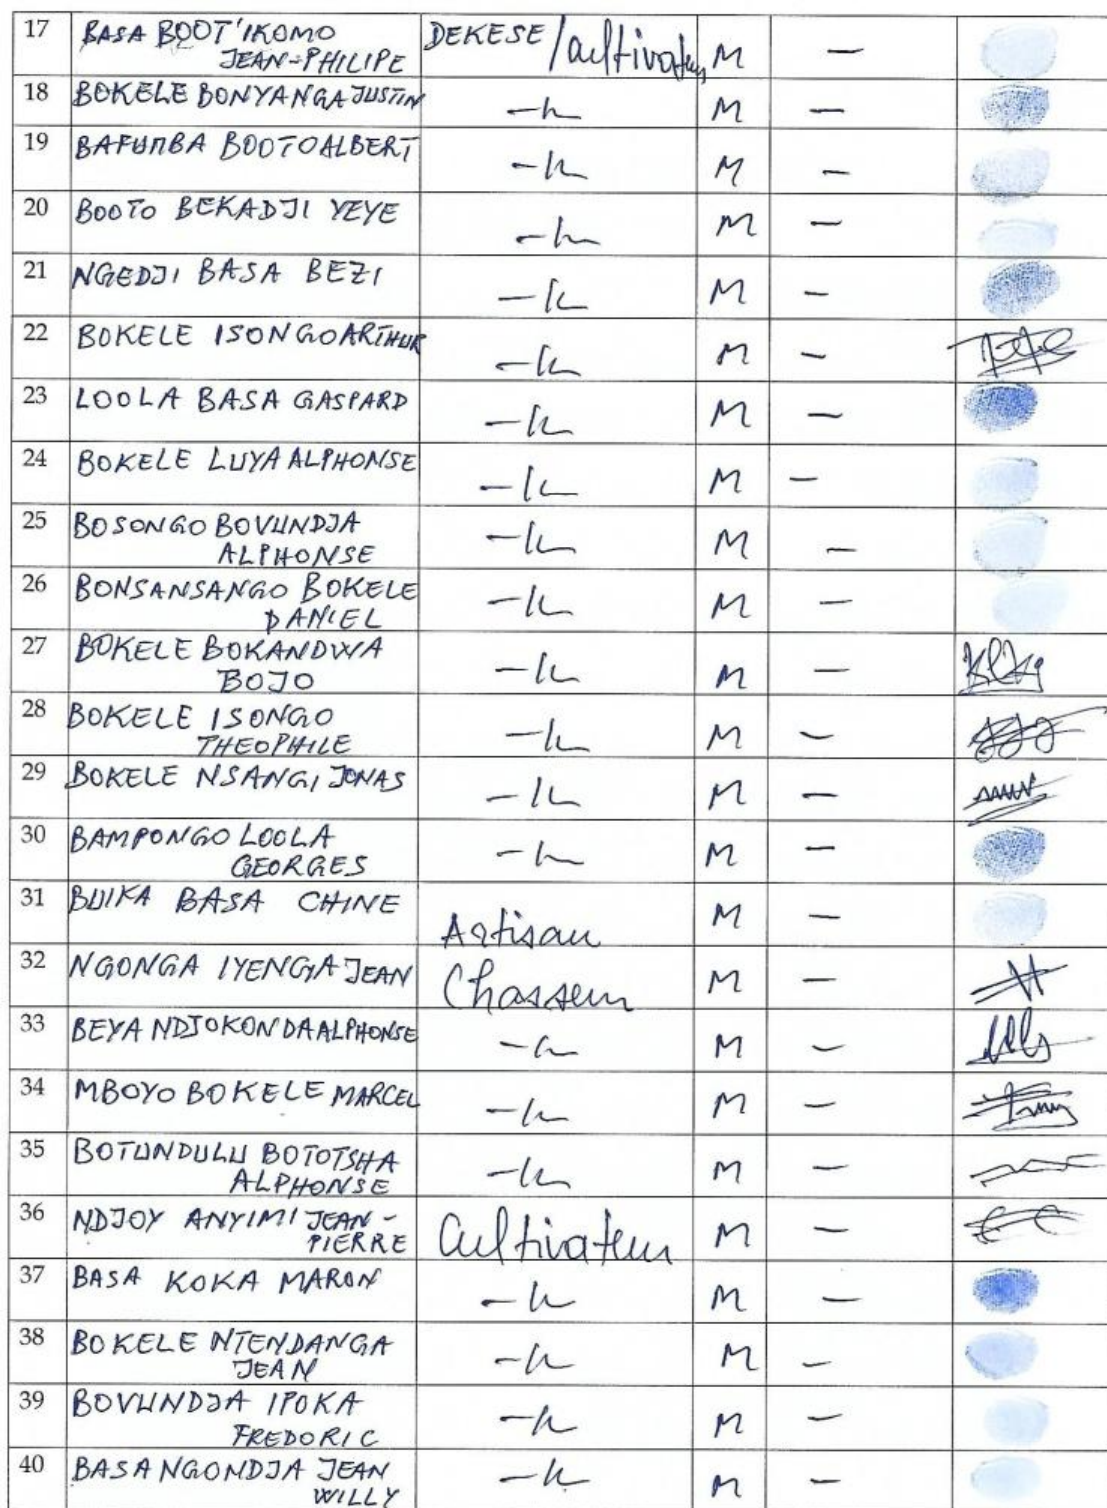 17 BASA BOOT'IKOMO DEKESE/cultivateur M —
JEAN-PHILIPE
18 BOKELE BONYANGA JUSTIN —"— M —
19 BAFUMBA BOOTO ALBERT —"— M —
20 BOOTO BEKADJI YEYE —"— M —
21 NGEDJI BASA BEZI —"— M —
22 BOKELE ISONGO ARTHUR —"— M —
23 LOOLA BASA GASPARD —"— M —
24 BOKELE LUYA ALPHONSE —"— M —
25 BOSONGO BOVUNDJA —"— M —
ALPHONSE
26 BONSANSANGO BOKELE —"— M —
DANIEL
27 BOKELE BOKANDWA —"— M —
BOJO
28 BOKELE ISONGO —"— M —
THEOPHILE
29 BOKELE NSANGI JONAS —"— M —
30 BAMPONGO LOOLA —"— M —
GEORGES
31 BUIKA BASA CHINE Artisan M —
32 NGONGA IYENGA JEAN Chasseur M —
33 BEYA NDJOKONDA ALPHONSE —"— M —
34 MBOYO BOKELE MARCEL —"— M —
35 BOTUNDULU BOTOTSHA —"— M —
ALPHONSE
36 NDJOY ANYIMI JEAN- Cultivateur M —
PIERRE
37 BASA KOKA MARON —"— M —
38 BOKELE NTENDANGA —"— M —
JEAN
39 BOVUNDJA IPOKA —"— M —
FREDORIC
40 BASA NGONDJA JEAN —"— M —
WILLY